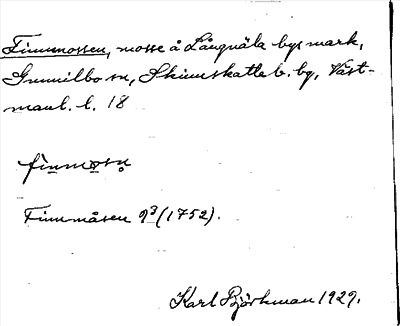 Finnmossen, mosse å Långnäla bys mark,
Gunnilbo sn, Skinnskatteb. bg, Väst-
manl. l. 18
finmosn
Finnmåsen 9³ (1752).
Karl Björkman 1929.